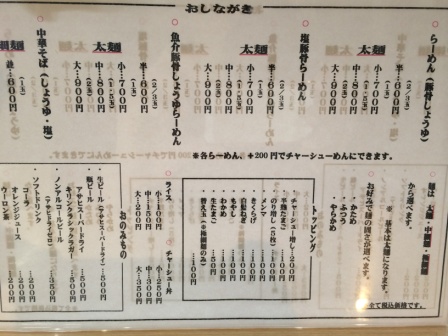 おしながき
らーめん（豚骨しょうゆ）
太麺
半…600円
小…700円
中…800円
大…900円
塩豚骨らーめん
太麺
半…600円
小…700円
中…800円
大…900円
魚介豚骨しょうゆらーめん
太麺
半…600円
小…700円
中…800円
大…900円
中華そば（しょうゆ・塩）
※各らーめん、+200円でチャーシューめんにできます。
麺は、太麺・中細麺・極細麺
から選べます。
※基本は太麺になります。
お好みで麺の硬さが選べます。
かため
ふつう
やわらか
全て税込価格です。
トッピング
・チャーシュー増し…200円
・半熟たまご…100円
・のり増し（5枚）…100円
・メンマ…100円
・きくらげ…100円
・白髪ねぎ
・もやし
・わかめ
・生たまご
・替え玉（※極細麺のみ）…100円
ライス
小…100円
中…150円
大…200円
チャーシュー丼
小…250円
中…300円
大…350円
おのみもの
・生ビール（アサヒスーパードライ）…500円
・瓶ビール
アサヒスーパードライ…500円
キリンクラシックラガー…500円
・ノンアルコールビール
（アサヒドライゼロ）
・ソフトドリンク
コーラ…200円
オレンジジュース…200円
ウーロン茶…200円